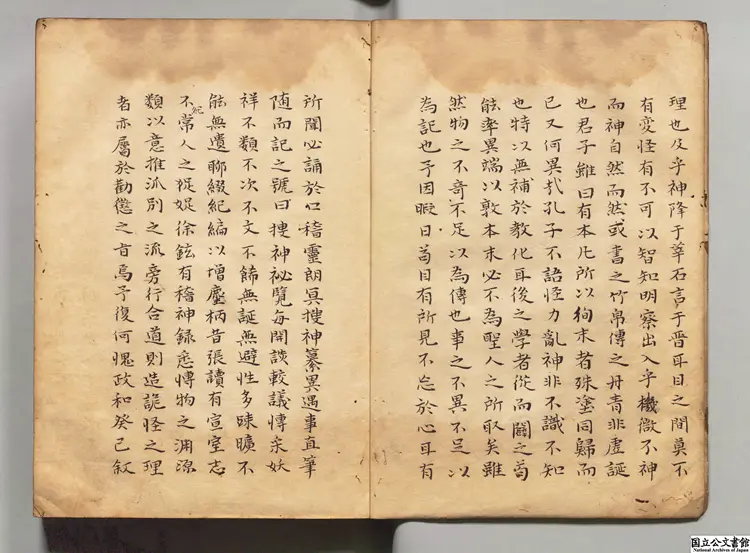 理也及乎神降于莘石言于晋耳目之間莫不
有変怪有不可以智知明察出入乎機微不神
而神自然而然或書之竹帛傳之丹青非虚誕
也君子雖曰有本凡所以徇末者殊塗同歸而
已又何異哉孔子不語怪力亂神非不識不知
也特以無補於教化耳後之學者從而闢之苟
能率異端以敦本末必不為聖人之所取矣雖
然物之不奇不足以為傳也事之不異不足以
為記也予因暇日苟目有所見不忘於心耳有
所聞必誦於口稽靈朗冥搜神纂異遇事直筆
随而記之號曰搜神祕覽每開談較議慱采妖
祥不類不次不文不餙無誕無避性多踈曠不
能無遺聊綴紀編以増麈柄昔張讀有宣室志
不紀常人之娖娖徐鉉有稽神録悉慱物之渊源
類以意推派別之流旁行合道則造詭怪之理
者亦屬於勸懲之旨焉予復何愧政和癸已叙
国立公文書館
National Archives of Japan